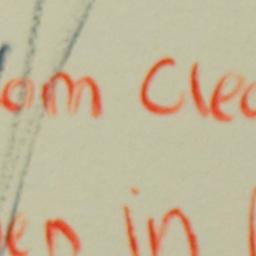 om Clea
en in